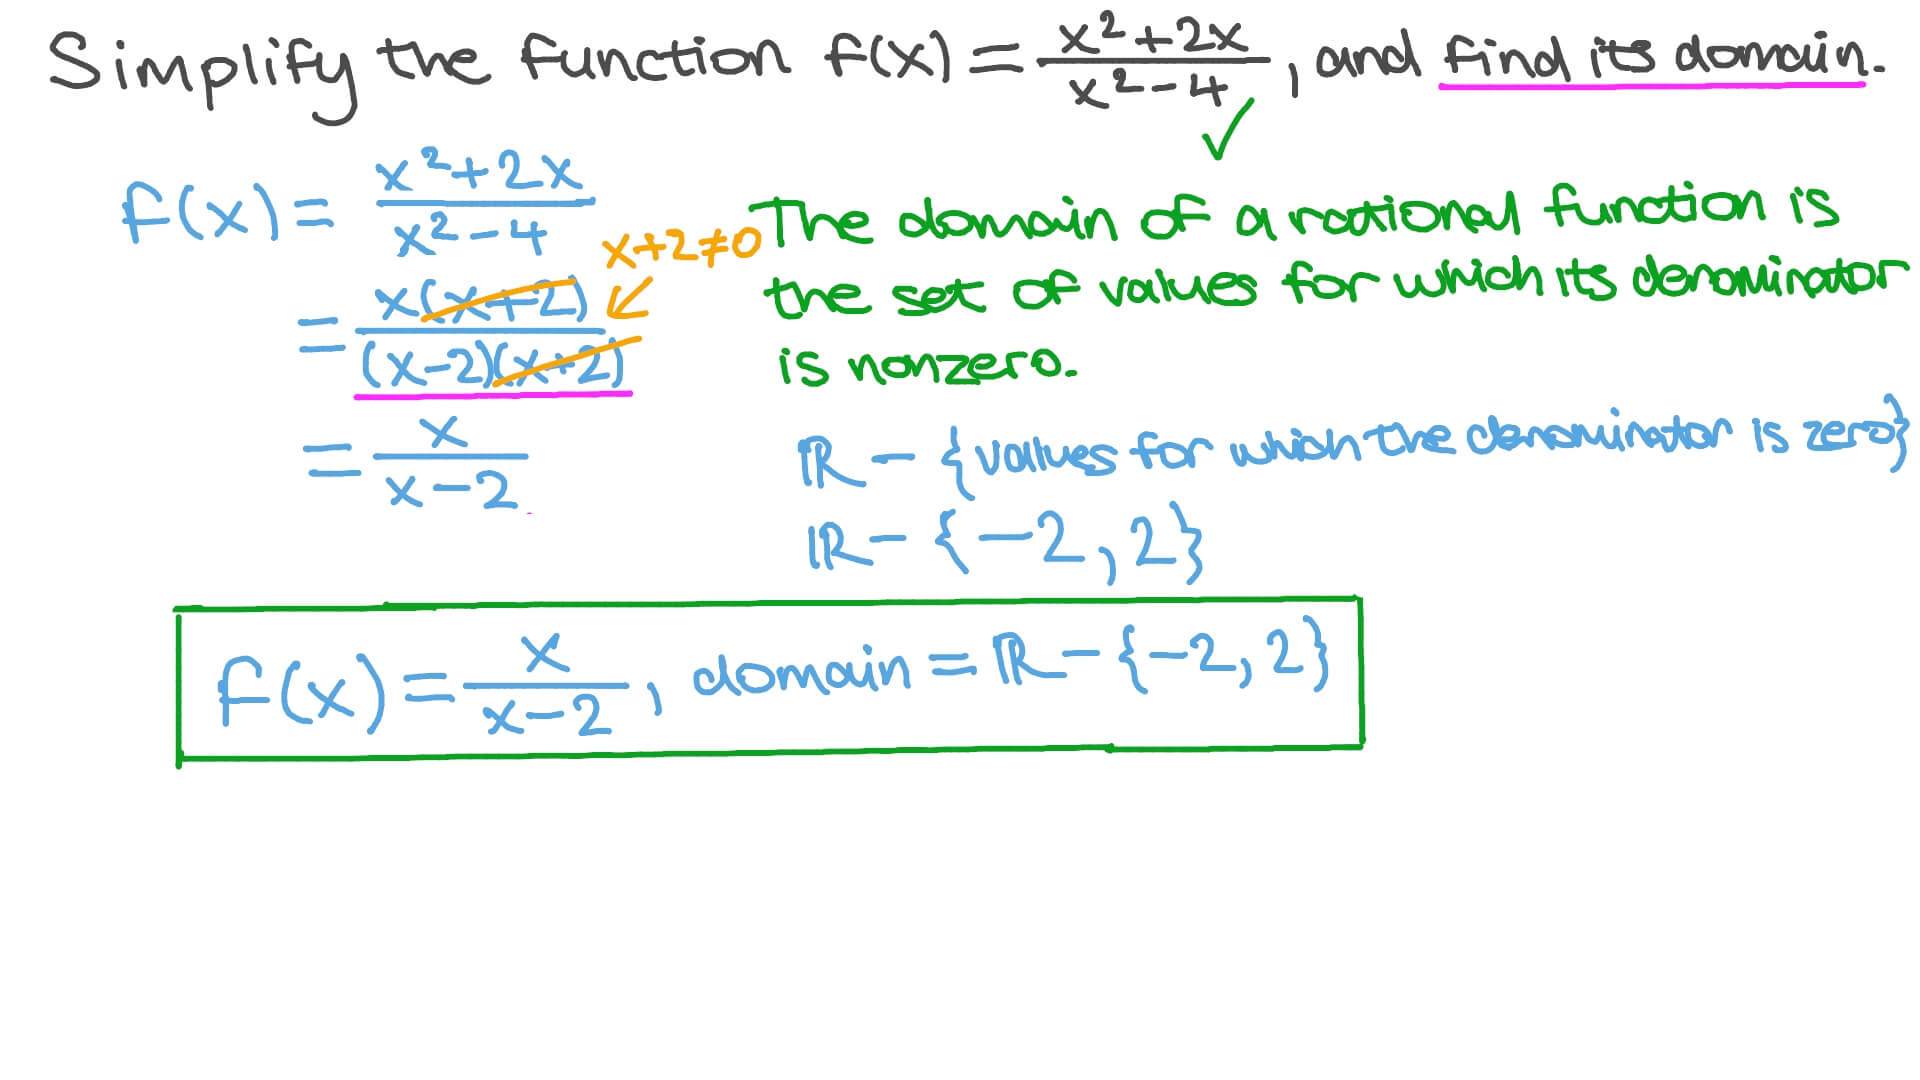 Simplify the function f(x) = (x²+2x)/(x²-4), and find its domain.
f(x) = (x²+2x)/(x²-4)
x+2≠0
= x(x+2)/(x-2)(x+2)
= x/(x-2)
The domain of a rational function is
the set of values for which its denominator
is nonzero.
ℝ - {values for which the denominator is zero}
ℝ - {-2, 2}
f(x) = x/(x-2), domain = ℝ - {-2, 2}